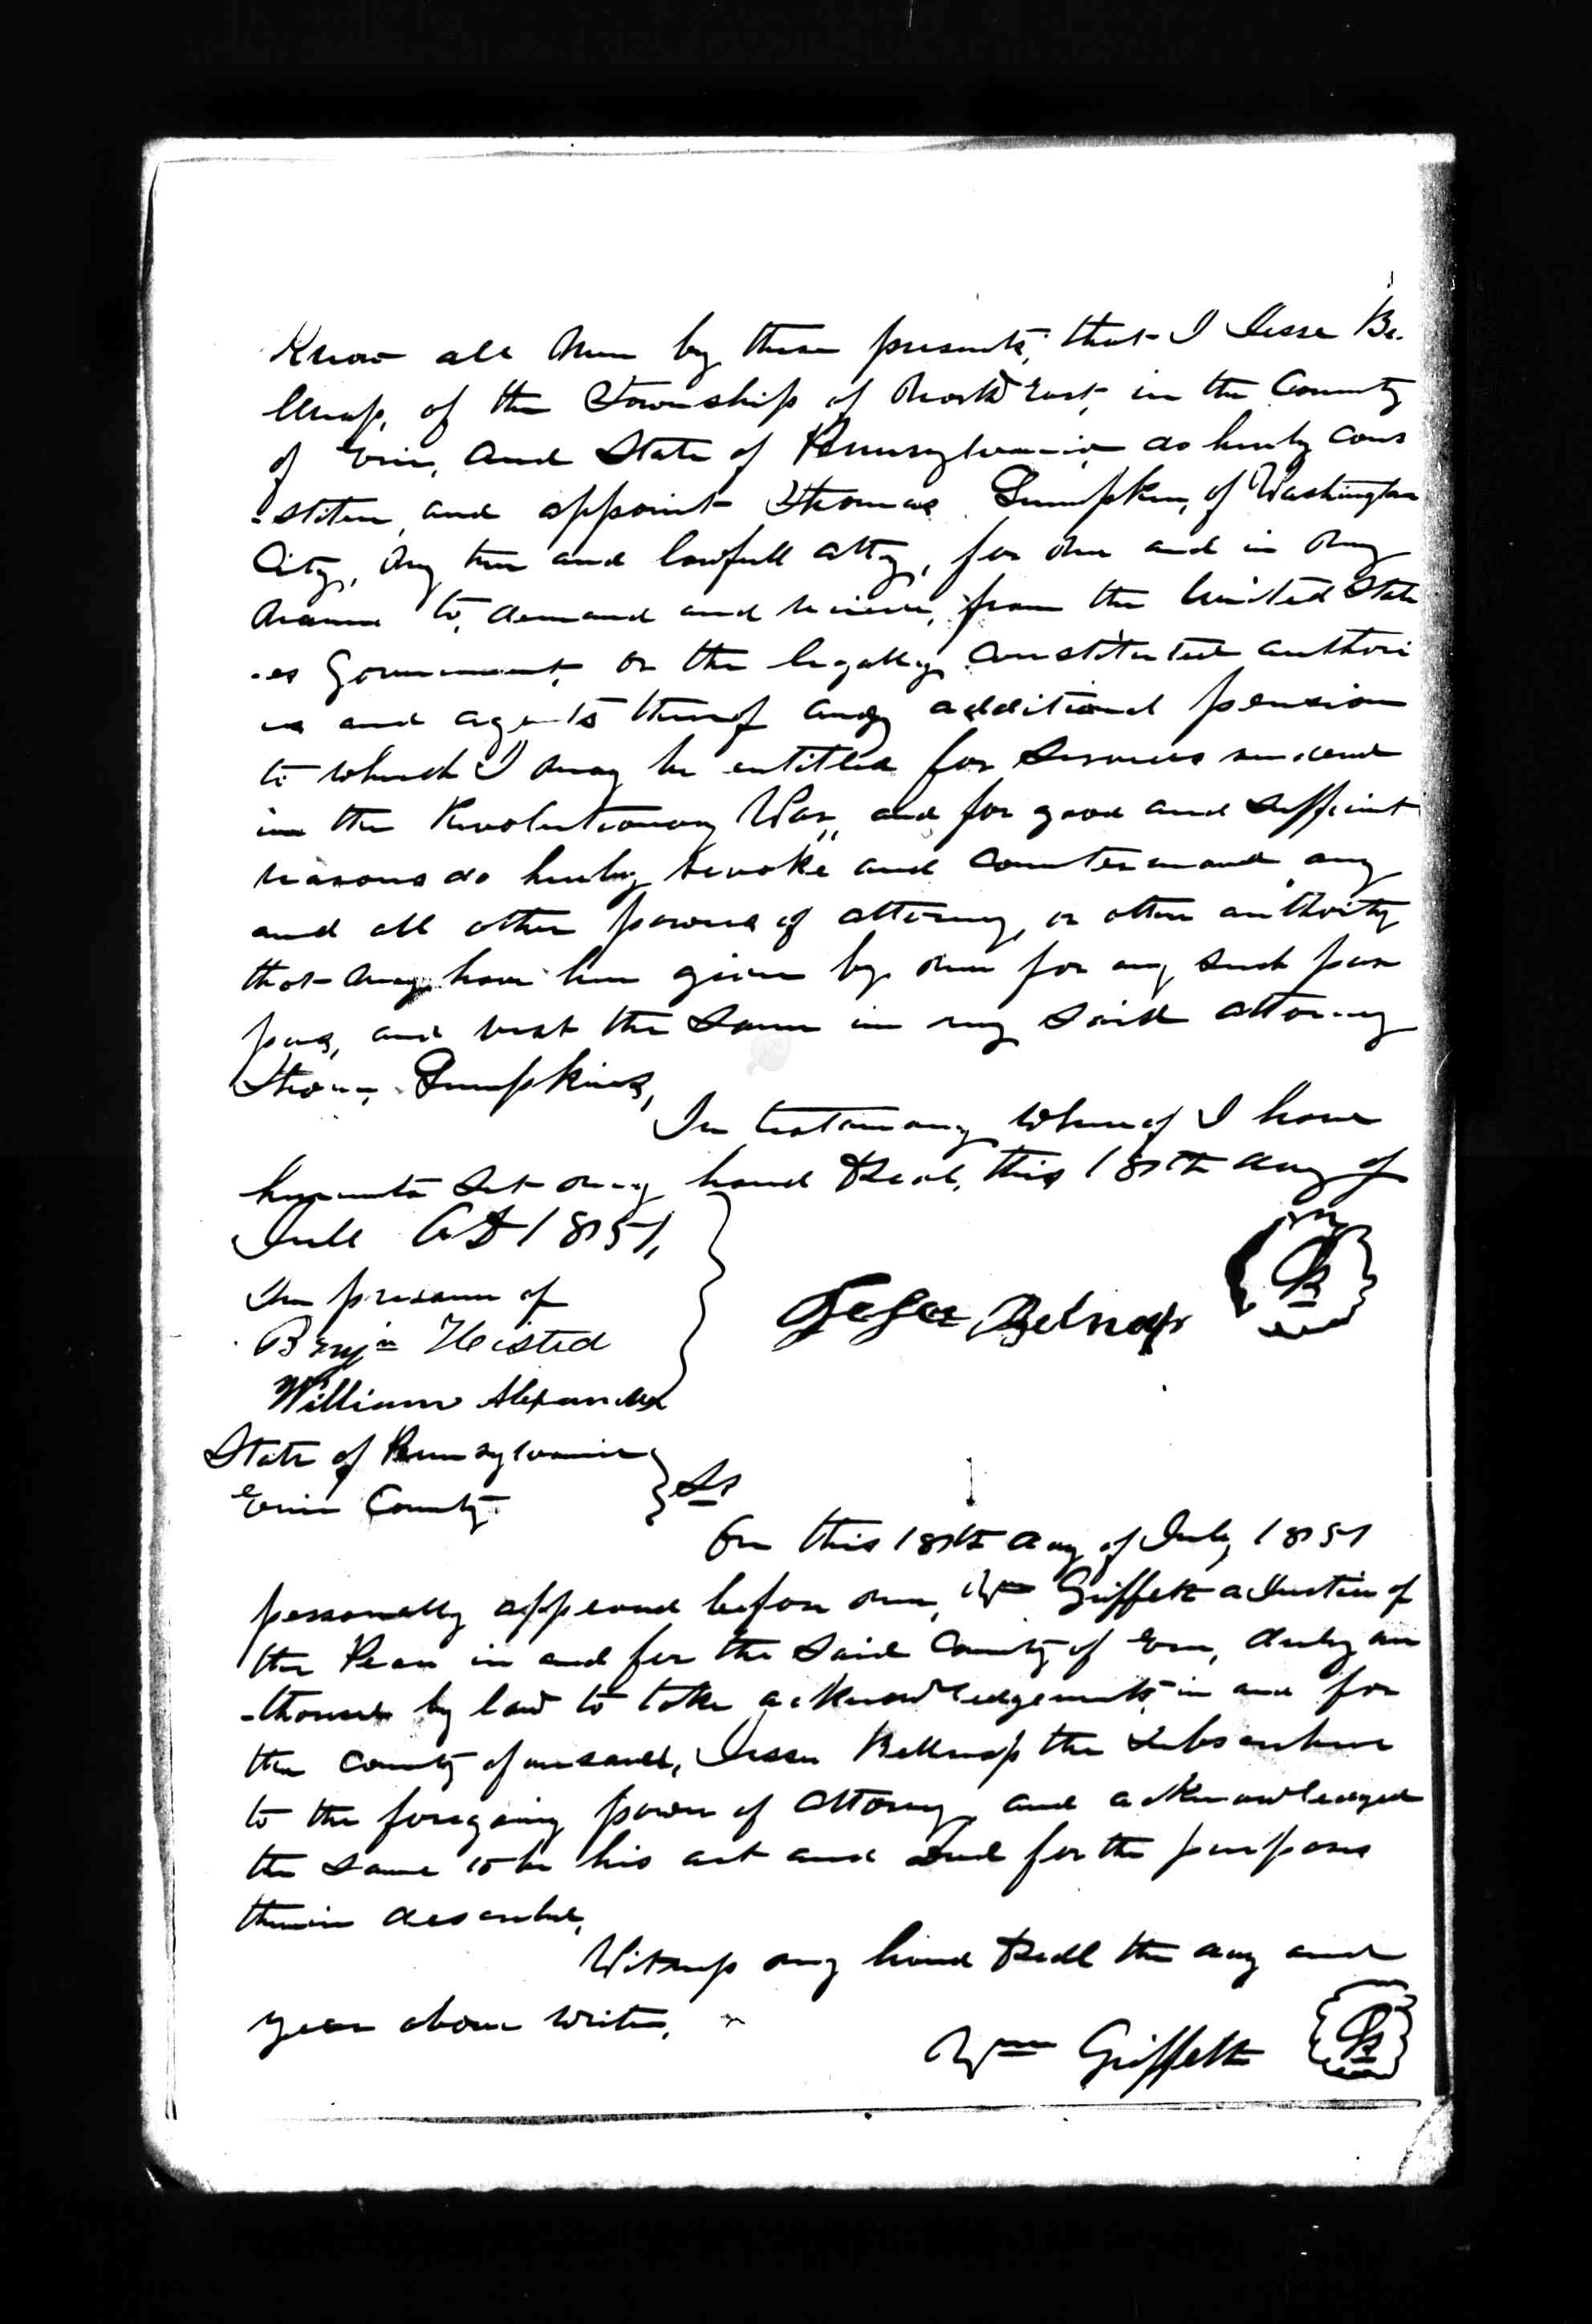 Know all Men by these presents, that I Jesse Be.
llnap, of the Township of North East, in the County
of Erie, and State of Pennsylvania do hereby cons
-titue, and appoint Thomas Lumpkin, of Washington
City, my true and lawfull atty, for me and in my
name to, demand and receive, from the United Stat
-es Government, or the legally constituted authori
es and agents thereof any additional pension
to which I may be entitled for Services rendered
in the Revolutionary War, and for good and sufficient
reasons do hereby revoke and countermand any
and all other powers of attorney, or other authority
that may have been given by me for any such pur
pos, and vest the Same in my said attorney
Thomas Lumpkins,
In testimony whereof I have
hereunto set my hand & seal, this 18th day of
July AD 1851,
In presence of
Benjn Heisted
William Alexander
Jesse Belnap
State of Pennsylvania
Erie County
Ss
On this 18th day of July 1851
personally appeared before me, Wm Griffeth a Justice of
the Peace in and for the Said County of Erie, duly au
-thorised by law to take acknowledgements in and for
the County aforesaid, Jesse Bellnap the Subscriber
to the foregoing power of attorney and acknowledged
the same to be his act and Deed for the purposes
therein described,
Witness my hand & seal the day and
year above writen,
Wm Griffeth